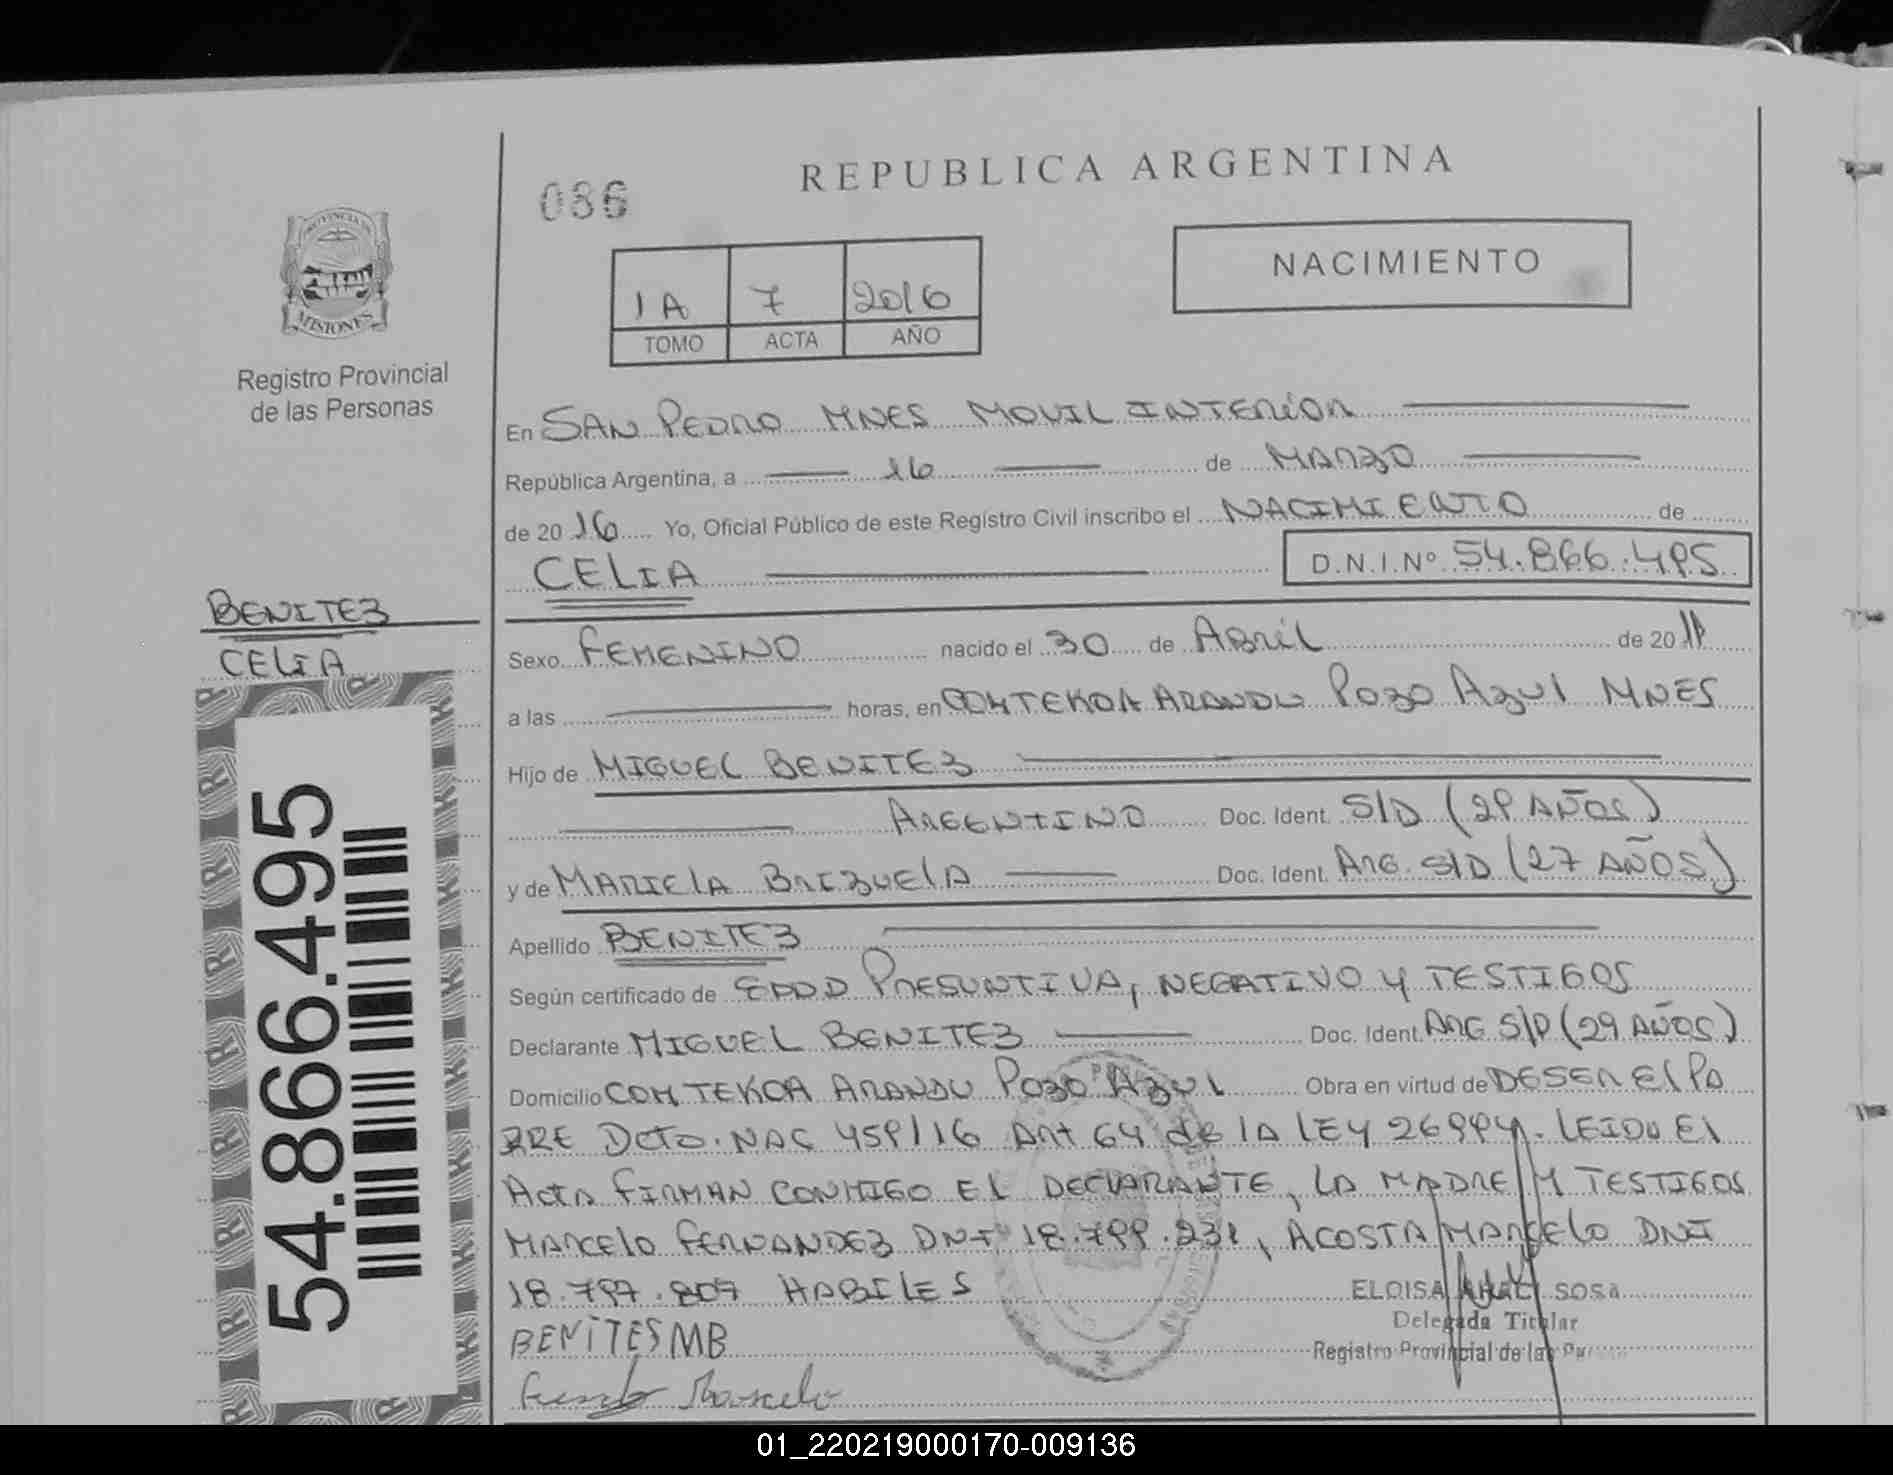 REPUBLICA ARGENTINA
086
NACIMIENTO
PROVINCIA DE
MISIONES
Registro Provincial
de las Personas
1A 7 2016
TOMO ACTA AÑO
En SAN PEDRO MNES MOVIL INTERIOR
República Argentina, a 16 de MARZO
de 2016 Yo, Oficial Público de este Registro Civil inscribo el NACIMIENTO de
CELIA D.N.I.Nº 54.866.495
BENITEZ
CELIA
54.866.495
Sexo FEMENINO nacido el 30 de ABRIL de 2011
a las horas, en COM TEKOA ARANDU POZO AZUL MNES
Hijo de MIGUEL BENITEZ
ARGENTINO Doc. Ident. S/D (29 AÑOS)
y de MARIELA BRIZUELA Doc. Ident. ARG. S/D (27 AÑOS)
Apellido BENITEZ
Según certificado de EDAD PRESUNTIVA, NEGATIVO Y TESTIGOS
Declarante MIGUEL BENITEZ Doc. Ident. ARG S/D (29 AÑOS)
Domicilio COM TEKOA ARANDU POZO AZUL Obra en virtud de DE SER EL PA
DRE Dcto. NAC 459/16 Art 64 de la LEY 26994. LEIDO El
Acta FIRMAN CONMIGO EL DECLARANTE, LA MADRE Y TESTIGOS
MARCELO FERNANDEZ DNI 18.799.231, ACOSTA MARCELO DNI
18.797.807 HABILES
ELOISA SOSA
Delegada Titular
Registro Provincial de las
BENITES MB
Marcelo
01_220219000170-009136